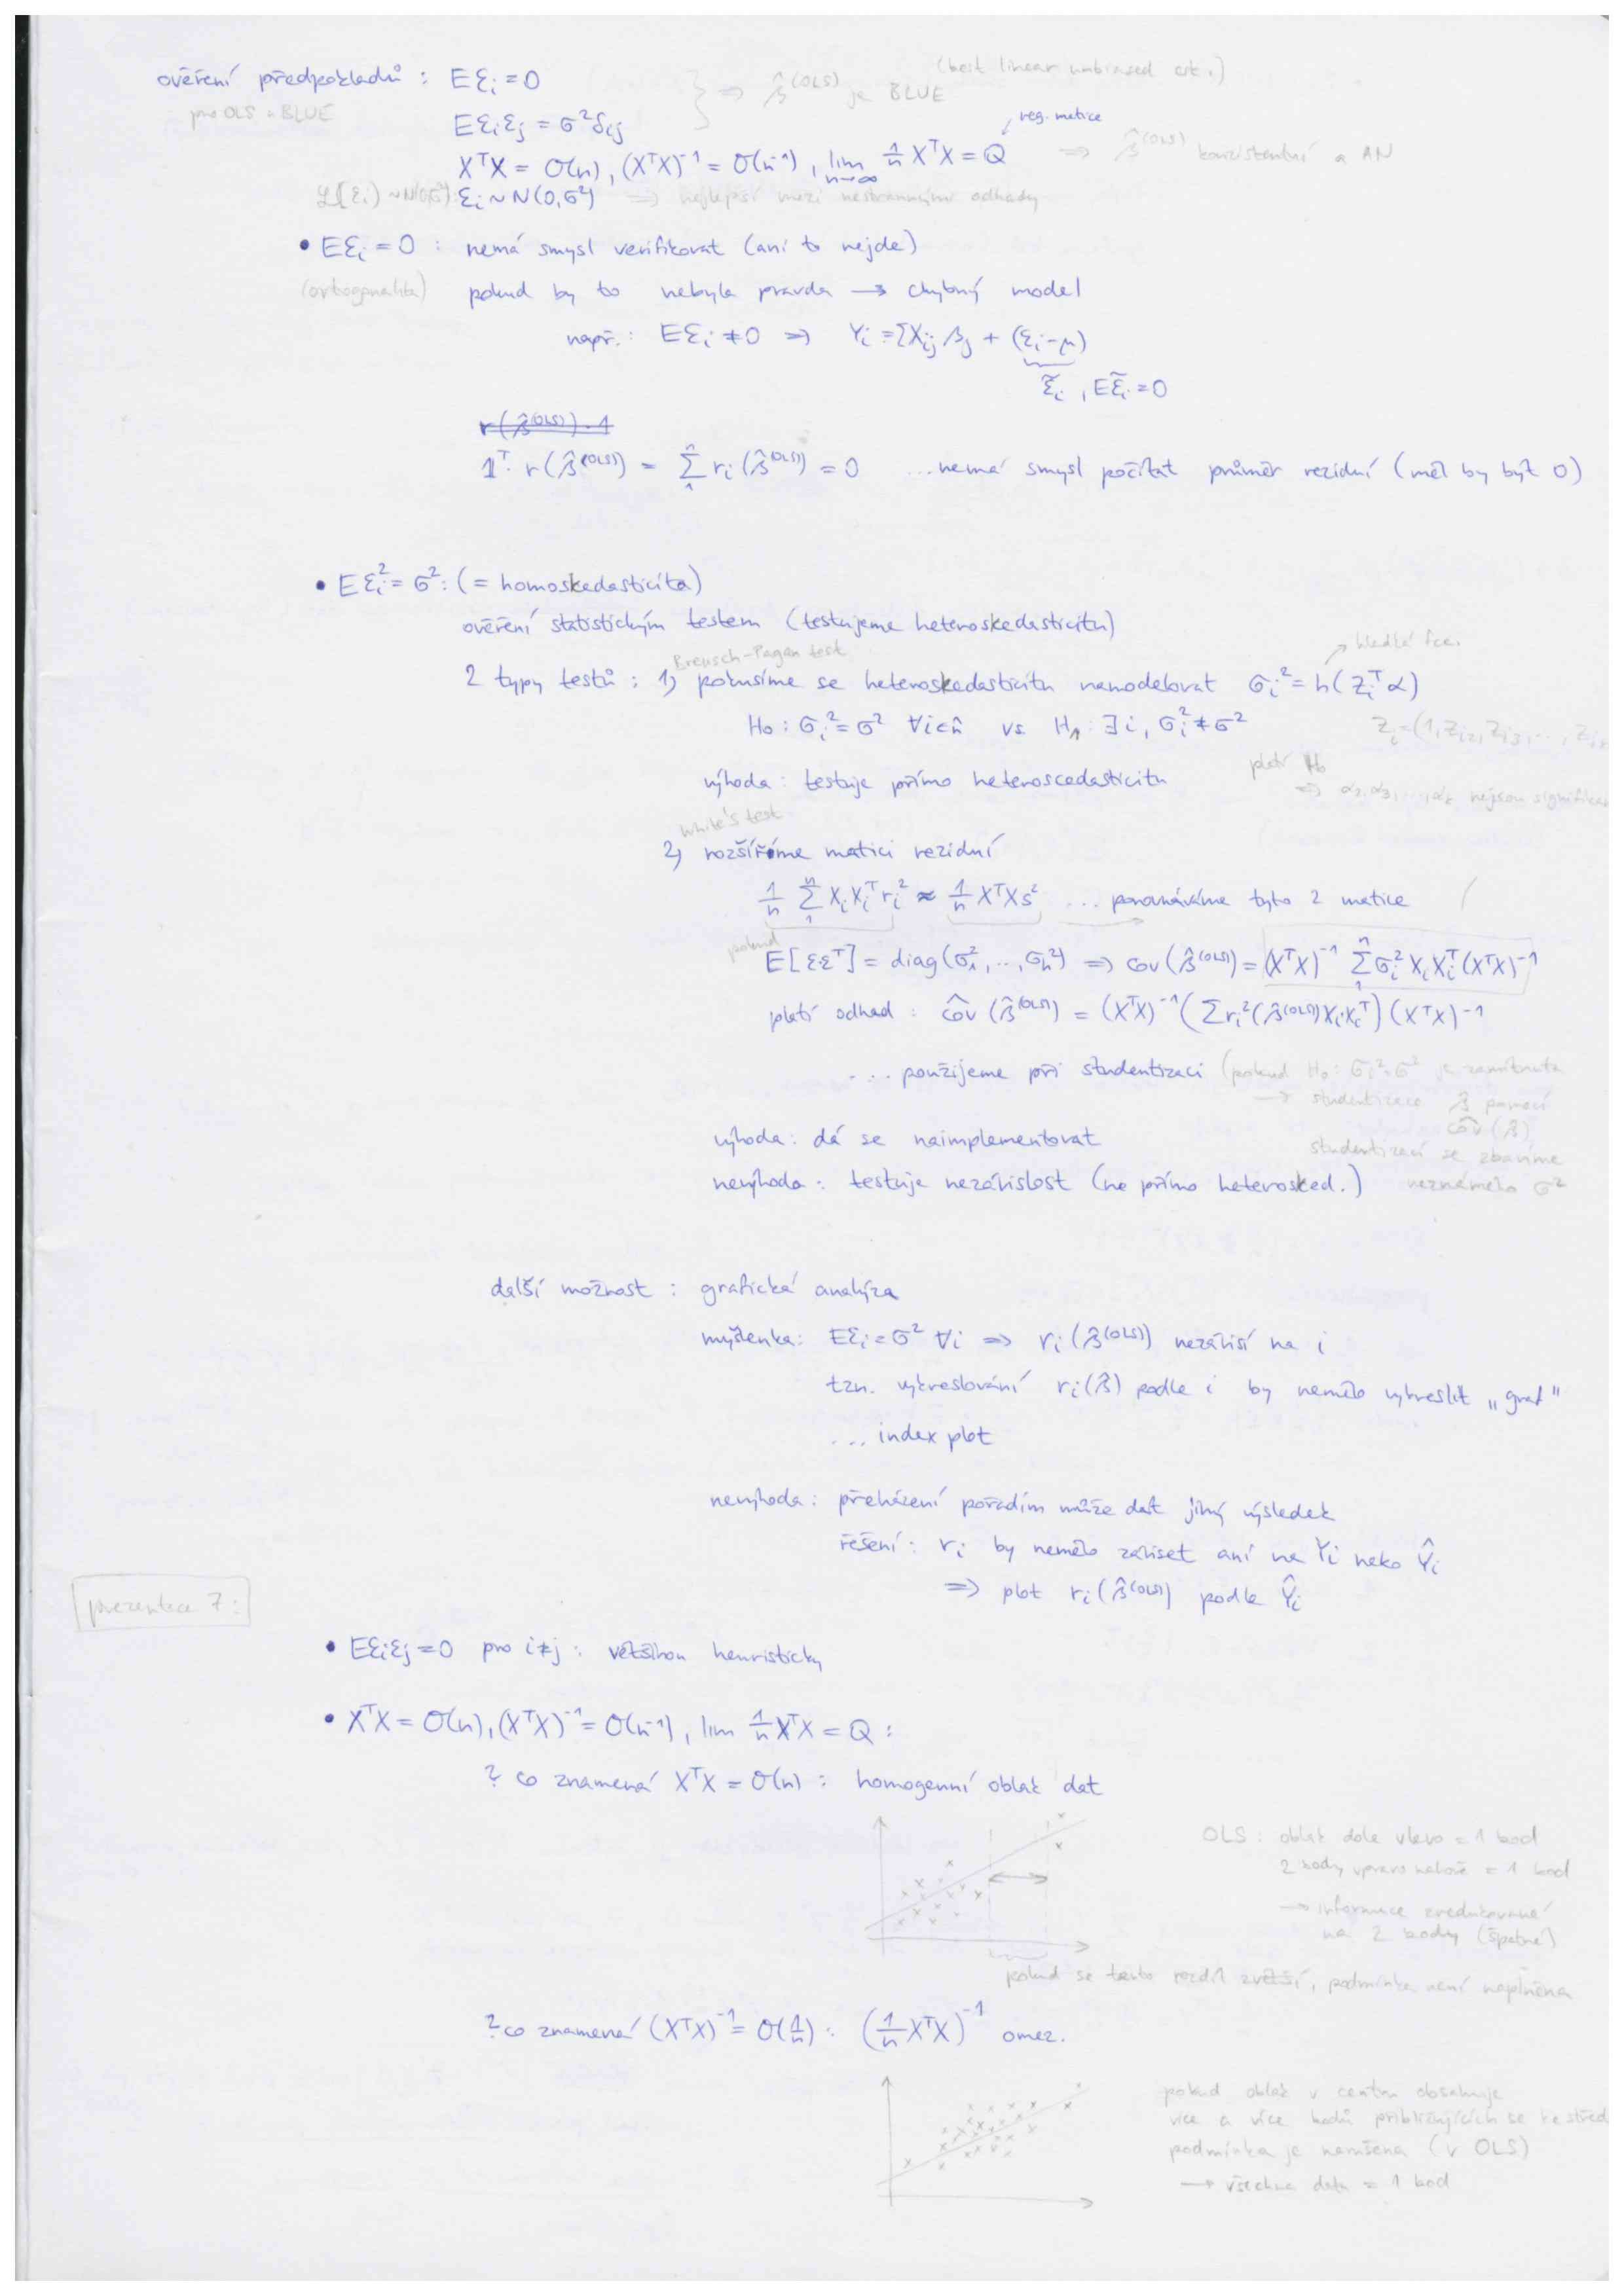 ověření předpokladů : Eε_i = 0 } ⇒ β̂^(OLS) je BLUE (best linear unbiased est.)
pro OLS = BLUE
Eε_iε_j = σ²δ_ij
reg. matice
XᵀX = O(n), (XᵀX)⁻¹ = O(n⁻¹), lim_{n→∞} 1/n XᵀX = Q ⇒ β̂^(OLS) konzistentní a AN
L(ε_i) ~ N(0,σ²): ε_i ~ N(0,σ²) ⇒ nejlepší mezi nestrannými odhady
• Eε_i = 0 : nemá smysl verifikovat (ani to nejde)
(ortogonalita) pokud by to nebyla pravda → chybný model
např.: Eε_i ≠ 0 ⇒ Y_i = ΣX_ij β_j + (ε_i - μ)
ε̃_i , Eε̃_i = 0
r(β̂^(OLS)) · 1
1ᵀ· r(β̂^(OLS)) = Σ₁ⁿ r_i(β̂^(OLS)) = 0 ... nemá smysl počítat průměr reziduí (měl by být 0)
• Eε_i² = σ² : (= homoskedasticita)
ověření statistickým testem (testujeme heteroskedasticitu)
Breusch-Pagan test
hladká fce.
2 typy testů : 1) pokusíme se heteroskedasticitu namodelovat σ_i² = h(Z_iᵀα)
H₀ : σ_i² = σ² ∀i∈n̂ vs H₁ : ∃i, σ_i² ≠ σ²
Z_i = (1, Z_i2, Z_i3, ...,
výhoda : testuje přímo heteroscedasticitu
platí H₀
⇒ α₂, α₃, ..., α_k nejsou
White's test
2) rozšíříme matici reziduí
1/n Σ₁ⁿ X_iX_iᵀr_i² ≈ 1/n XᵀXs² ... porovnáváme tyto 2 matice
pokud E[εεᵀ] = diag(σ₁², ..., σ_n²) ⇒ cov(β̂^(OLS)) = (XᵀX)⁻¹ Σ₁ⁿ σ_i² X_iX_iᵀ (XᵀX)⁻¹
platí odhad : côv(β̂^(OLS)) = (XᵀX)⁻¹ (Σr_i²(β̂^(OLS))X_iX_iᵀ) (XᵀX)⁻¹
... použijeme při studentizaci (pokud H₀ : σ_i² = σ² je zamítnuta
→ studentizace β̂ pomocí
côv(β̂)
výhoda : dá se naimplementovat
studentizací se zbavíme
nevýhoda : testuje nezávislost (ne přímo heterosked.) neznámého σ²
další možnost : grafická analýza
myšlenka: Eε_i = σ² ∀i ⇒ r_i(β̂^(OLS)) nezávisí na i
tzn. vykreslování r_i(β̂) podle i by nemělo vykreslit „graf"
... index plot
nevýhoda : přeházení pořadím může dát jiný výsledek
řešení : r_i by nemělo záviset ani na Y_i neko Ŷ_i
⇒ plot r_i(β̂^(OLS)) podle Ŷ_i
prezentace 7 :
• Eε_iε_j = 0 pro i≠j : většinou heuristicky
• XᵀX = O(n), (XᵀX)⁻¹ = O(n⁻¹), lim 1/n XᵀX = Q :
? co znamená XᵀX = O(n) : homogenní oblak dat
OLS : oblak dole vlevo = 1 bod
2 body vpravo nahoře = 1 bod
→ informace zredukované
na 2 body (špatné)
pokud se tento rozdíl zvětší, podmínka není naplněna
? co znamená (XᵀX)⁻¹ = O(1/n) : (1/n XᵀX)⁻¹ omez.
pokud oblak v centru obsahuje
více a více bodů přibližujících se ke střed
podmínka je narušena (v OLS)
→ všechna data = 1 bod